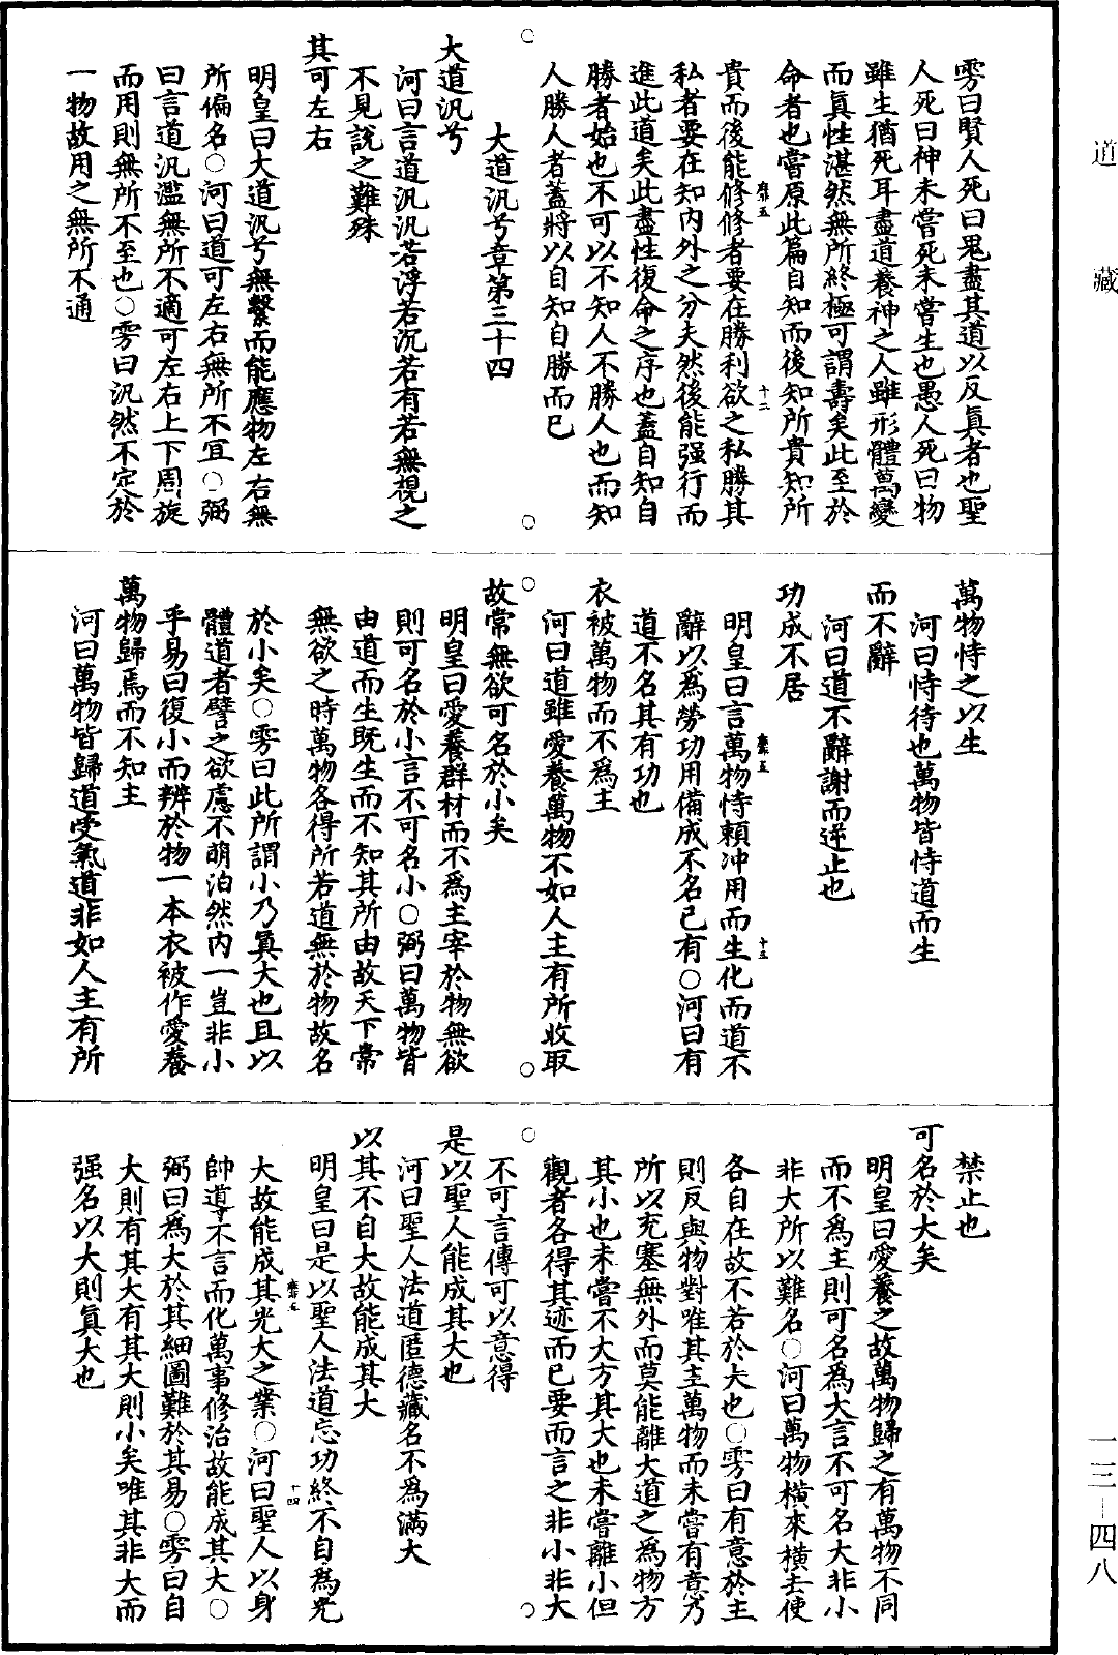 道藏
雱曰賢人死曰鬼盡其道以反眞者也聖
人死曰神未嘗死未嘗生也愚人死曰物
雖生猶死耳盡道養神之人雖形體萬變
而眞性湛然無所終極可謂壽矣此至於
命者也嘗原此篇自知而後知所貴知所
貴而後能修修者要在勝利欲之私勝其
私者要在知內外之分夫然後能强行而
進此道矣此盡性復命之序也蓋自知自
勝者始也不可以不知人不勝人也而知
人勝人者蓋將以自知自勝而已
大道汎兮章第三十四
大道汎兮
河曰言道汎汎若浮若沉若有若無視之
不見說之難殊
其可左右
明皇曰大道汎兮無繫而能應物左右無
所偏名○河曰道可左右無所不宜○弼
曰言道汎濫無所不適可左右上下周旋
而用則無所不至也○雱曰汎然不定於
一物故用之無所不通
萬物恃之以生
河曰恃待也萬物皆恃道而生
而不辭
河曰道不辭謝而逆止也
功成不居
明皇曰言萬物恃賴沖用而生化而道不
辭以爲勞功用備成不名已有○河曰有
道不名其有功也
衣被萬物而不爲主
河曰道雖愛養萬物不如人主有所收取
故常無欲可名於小矣
明皇曰愛養群材而不爲主宰於物無欲
則可名於小言不可名小○弼曰萬物皆
由道而生既生而不知其所由故天下常
無欲之時萬物各得所若道無於物故名
於小矣○雱曰此所謂小乃眞大也且以
體道者譬之欲慮不萌泊然內一豈非小
乎易曰復小而辨於物一本衣被作愛養
萬物歸焉而不知主
河曰萬物皆歸道受氣道非如人主有所
禁止也
可名於大矣
明皇曰愛養之故萬物歸之有萬物不同
而不爲主則可名爲大言不可名大非小
非大所以難名○河曰萬物橫來橫去使
各自在故不若於大也○雱曰有意於主
則反與物對唯其主萬物而未嘗有意乃
所以充塞無外而莫能離大道之爲物方
其小也未嘗不大方其大也未嘗離小但
觀者各得其迹而已要而言之非小非大
不可言傳可以意得
是以聖人能成其大也
河曰聖人法道匿德藏名不爲滿大
以其不自大故能成其大
明皇曰是以聖人法道忘功終不自爲光
大故能成其光大之業○河曰聖人以身
帥導不言而化萬事修治故能成其大○
弼曰爲大於其細圖難於其易○雱曰自
大則有其大有其大則小矣唯其非大而
强名以大則眞大也
一三-四八